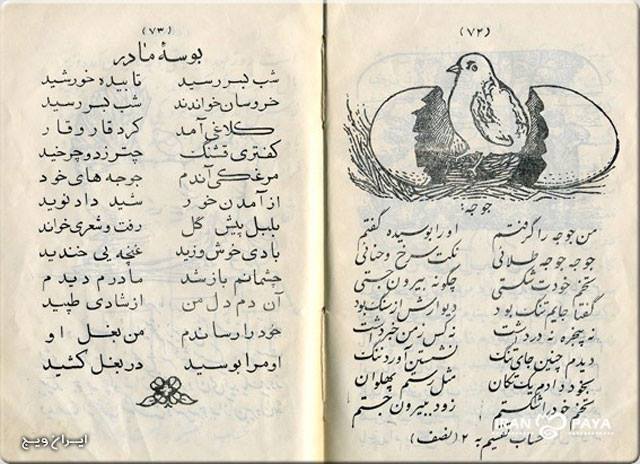 (۷۲)
جوجه:
من جوجه را گرفتم او را بوسیده گفتم
جوجه جوجه طلائی نکت سرخ و حنائی
تخم خودت شکستی چگونه بیرون جستی
گفتا جایم تنگ بود دیوارش از سنگ بود
نه پنجره نه در داشت نه کس ز من خبر داشت
دیدم چنین جای تنگ نشستن آورد ننگ
بخود دادم یک تکان مثل رستم پهلوان
تخم خود را شکستم زود بیرون جستم
حساب تقسیم به ۲ (نصف)
IRAN PAYA
(۷۳)
بوسهٔ مادر
شب بسر رسید تابیده خورشید
خروسان خواندند شب بسر رسید
کلاغی آمد کرد قار و قار
کفتری قشنگ چتر زد و چرخید
مرغکی آندم جوجه های خود
از آمدن خور شید داد نوید
بلبل پیش گل رفت و شعری خواند
بادی خوش وزید غنچه یی خندید
چشمانم باز شد مادرم دیدم
آن دم دل من از شادی طپید
خود را رساندم من بغل او
او مرا بوسید در بغل کشید
ایران ویج